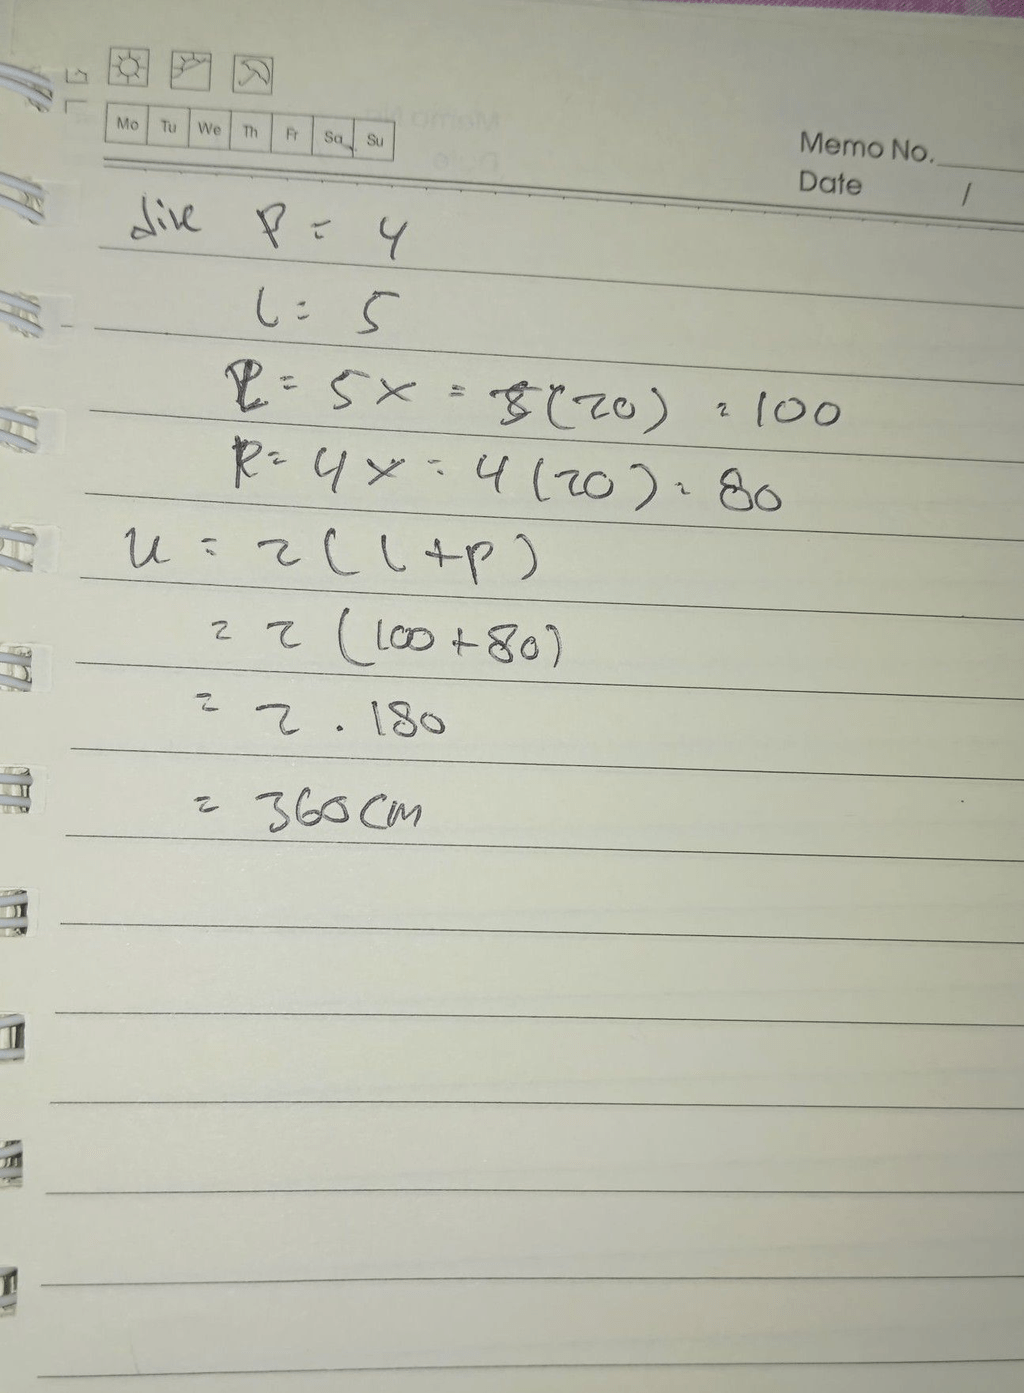 Mo Tu We Th Fr Sa Su
Memo No.
Date /
P = 4
l = 5
l = 5x = 5(20) = 100
P = 4x = 4(20) = 80
u = 2(l+p)
= 2(100+80)
= 2 . 180
= 360 cm